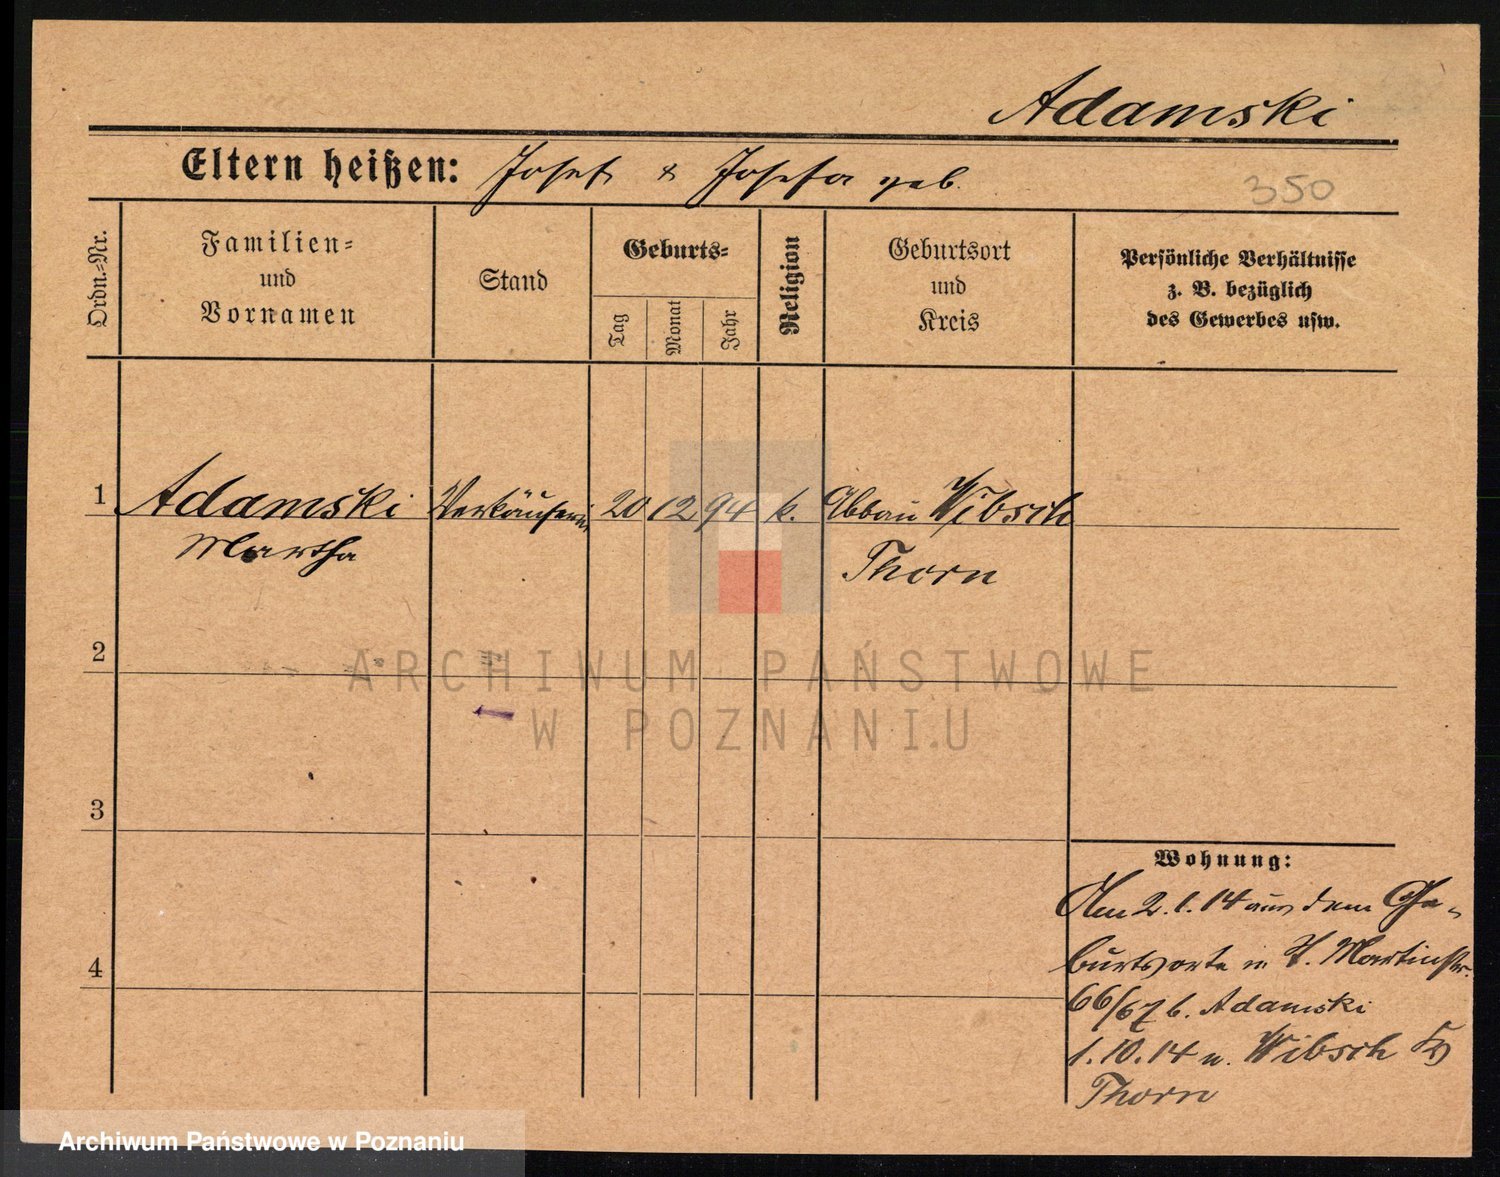 Adamski
Eltern heißen: Josef & Josefa geb.
350
Ordn.=Nr.
Familien=
und
Vornamen
Stand
Geburts=
Tag
Monat
Jahr
Religion
Geburtsort
und
Kreis
Persönliche Verhältnisse
z. B. bezüglich
des Gewerbes usw.
1 Adamski Verkäuferin 20 12 94 k. Abbau Wibsch
Martha Thorn
2
ARCHIWUM PAŃSTWOWE
W POZNANIU
3
Wohnung:
Am 2.1.14 aus dem Ge-
burtsorte n. St. Martinstr.
4
66/67 b. Adamski
1.10.14 n. Wibsch Kr
Thorn
Archiwum Państwowe w Poznaniu